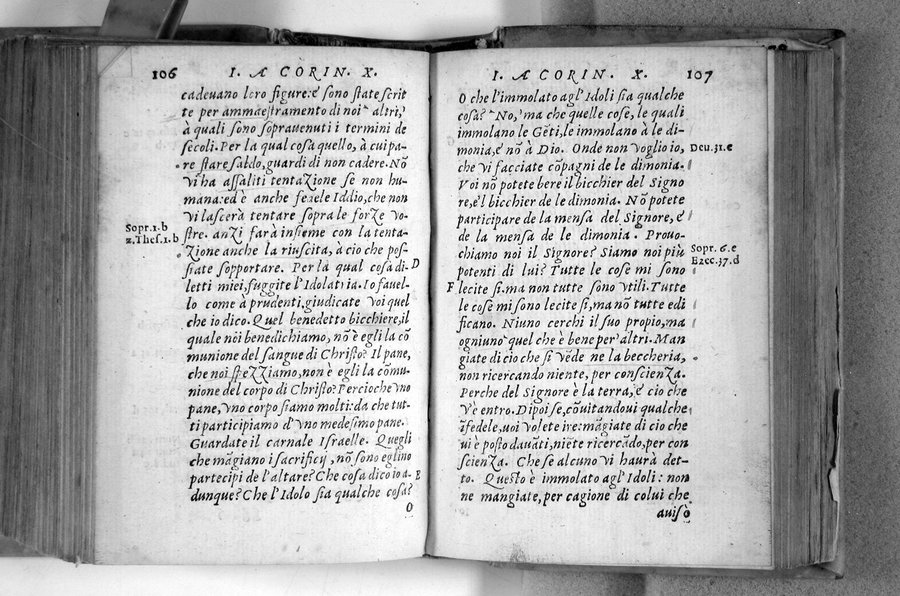 106 I. A CORIN. X.
cadeuano loro figure: e sono state scrit
te per ammaestramento di noi altri,
à quali sono soprauenuti i termini de
secoli. Per la qual cosa quello, à cui pa-
re stare saldo, guardi di non cadere. Nõ
vi ha assaliti tentaZione se non hu-
mana: ed è anche fedele Iddio, che non
vi lascerà tentare sopra le forZe vo-
stre. anzi farà insieme con la tenta-
Zione anche la riuscita, à cio che pos-
siate sopportare. Per la qual cosa di-
letti miei, fuggite l'Idolatria. Io fauel-
lo come à prudenti, giudicate voi quel
che io dico. Quel benedetto bicchiere, il
quale noi benedichiamo, nõ è egli la cõ
munione del sangue di Christo? Il pane,
che noi speZZiamo, non è egli la cõmu-
nione del corpo di Christo? Percioche vno
pane, vno corpo siamo molti: da che tut-
ti participiamo d'vno medesimo pane.
Guardate il carnale Israelle. Quegli
che mãgiano i sacrificij, nõ sono eglino
partecipi de l'altare? Che cosa dico io a-
dunque? Che l'Idolo sia qualche cosa?
O
Sopr. 1. b
2. Thes. 1. b
D
E
I. A CORIN. X. 107
O che l'immolato agl' Idoli sia qualche
cosa? No, ma che quelle cose, le quali
immolano le Gẽti, le immolano à le di-
monia, e nõ à Dio. Onde non voglio io,
che vi facciate cõpagni de le dimonia.
Voi nõ potete bere il bicchier del Signo
re, e'l bicchier de le dimonia. Nõ potete
participare de la mensa del Signore, e
de la mensa de le dimonia. Prouo-
chiamo noi il Signore? Siamo noi più
potenti di lui? Tutte le cose mi sono
lecite sì, ma non tutte sono vtili. Tutte
le cose mi sono lecite sì, ma nõ tutte edi
ficano. Niuno cerchi il suo propio, ma
ogniuno quel che è bene per' altri. Man
giate di cio che si vẽde ne la beccheria,
non ricercando niente, per conscienZa.
Perche del Signore è la terra, e cio che
v'è entro. Dipoi se, cõuitandoui qualche
ĩfedele, uoi volete ire: mãgiate di cio che
ui è posto dauãti, niẽte ricercãdo, per con
scienZa. Che se alcuno vi haurà det-
to. Questo è immolato agl' Idoli: non
ne mangiate, per cagione di colui che
auisò
Deu. 31. e
Sopr. 6. e
Ezec. 37. d
F